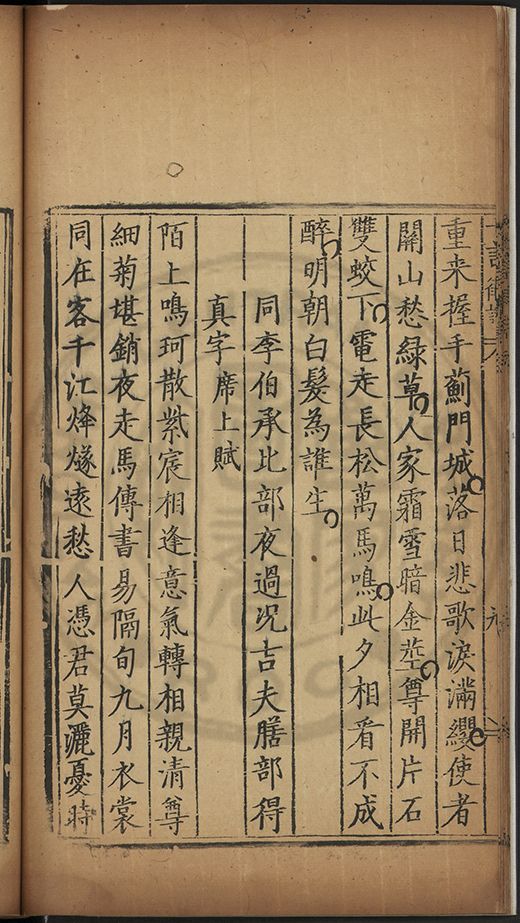 重来握手薊門城落日悲歌淚滿纓使者
關山愁緑草人家霜雪暗金莖尊開片石
雙蛟下電走長松萬馬鳴此夕相看不成
醉明朝白髮為誰生
同李伯承比部夜過况吉夫膳部得
真字席上賦
陌上鳴珂散紫宸相逢意氣轉相親清尊
細菊堪銷夜走馬傳書易隔旬九月衣裳
同在客千江烽燧遠愁人憑君莫灑憂時